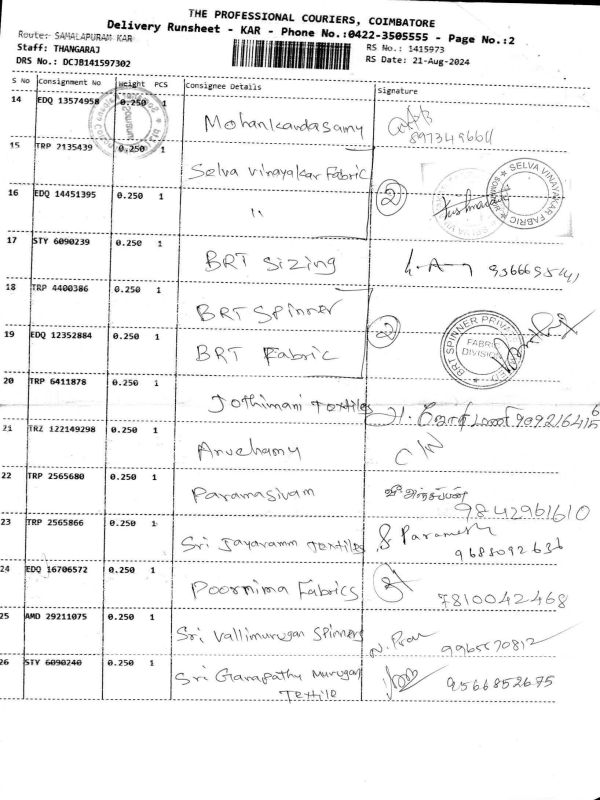 THE PROFESSIONAL COURIERS, COIMBATORE
Delivery Runsheet - KAR - Phone No.:0422-3505555 - Page No.:2
Route: SAMALAPURAM KAR
RS No.: 1415973
Staff: THANGARAJ
RS Date: 21-Aug-2024
DRS No.: DCJB141597302
S No Consignment No Weight PCS Consignee Details Signature
14 EDQ 13574958 0.250 1 Mohankandasamy
8973496611
15 TRP 2135439 0.250 1 Selva Vinayakar Fabric
SELVA VINAYAKAR FABRIC
16 EDQ 14451395 0.250 1 " 2
17 STY 6090239 0.250 1 BRT Sizing
18 TRP 4400386 0.250 1 BRT Spinner
BRT SPINNER PRIVATE
FABRIC
DIVISION
19 EDQ 12352884 0.250 1 BRT Fabric 2
20 TRP 6411878 0.250 1 Jothimani Textiles
21 TRZ 122149298 0.250 1 Aruchamy
22 TRP 2565680 0.250 1 Paramasivam
9842961610
23 TRP 2565866 0.250 1 Sri Jayaramm Textiles S Paramesh
9688092636
24 EDQ 16706572 0.250 1 Poornima Fabrics 7810042468
25 AMD 29211075 0.250 1 Sri Vallimurugan Spinners
26 STY 6090240 0.250 1 Sri Ganapathy Murugan 9566852675
Textile